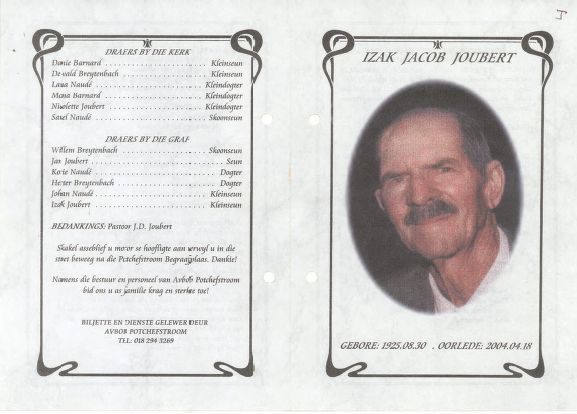 DRAERS BY DIE KERK
Danie Barnard Kleinseun
De-wald Breytenbach Kleinseun
Naudé Kleindogter
Barnard Kleindogter
Nicolette Joubert Kleindogter
Sarel Naudé Skoonseun
DRAERS BY DIE GRAF
Willem Breytenbach Skoonseun
Jan Joubert Seun
Naudé Dogter
Hester Breytenbach Dogter
Johan Naudé Kleinseun
Izak Joubert Kleinseun
BEDANKINGS: Pastoor J.D. Joubert
Skakel asseblief u motor se hoofligte aan terwyl u in die
stoet beweeg na die Potchefstroom Begraafplaas. Dankie!
Namens die bestuur en personeel van Avbob Potchefstroom
bid ons u as familie krag en sterkte toe!
BILJETTE EN DIENSTE GELEWER DEUR
AVBOB POTCHEFSTROOM
TEL: 018 294 3269
J
IZAK JACOB JOUBERT
GEBORE: 1925.08.30 . OORLEDE: 2004.04.18